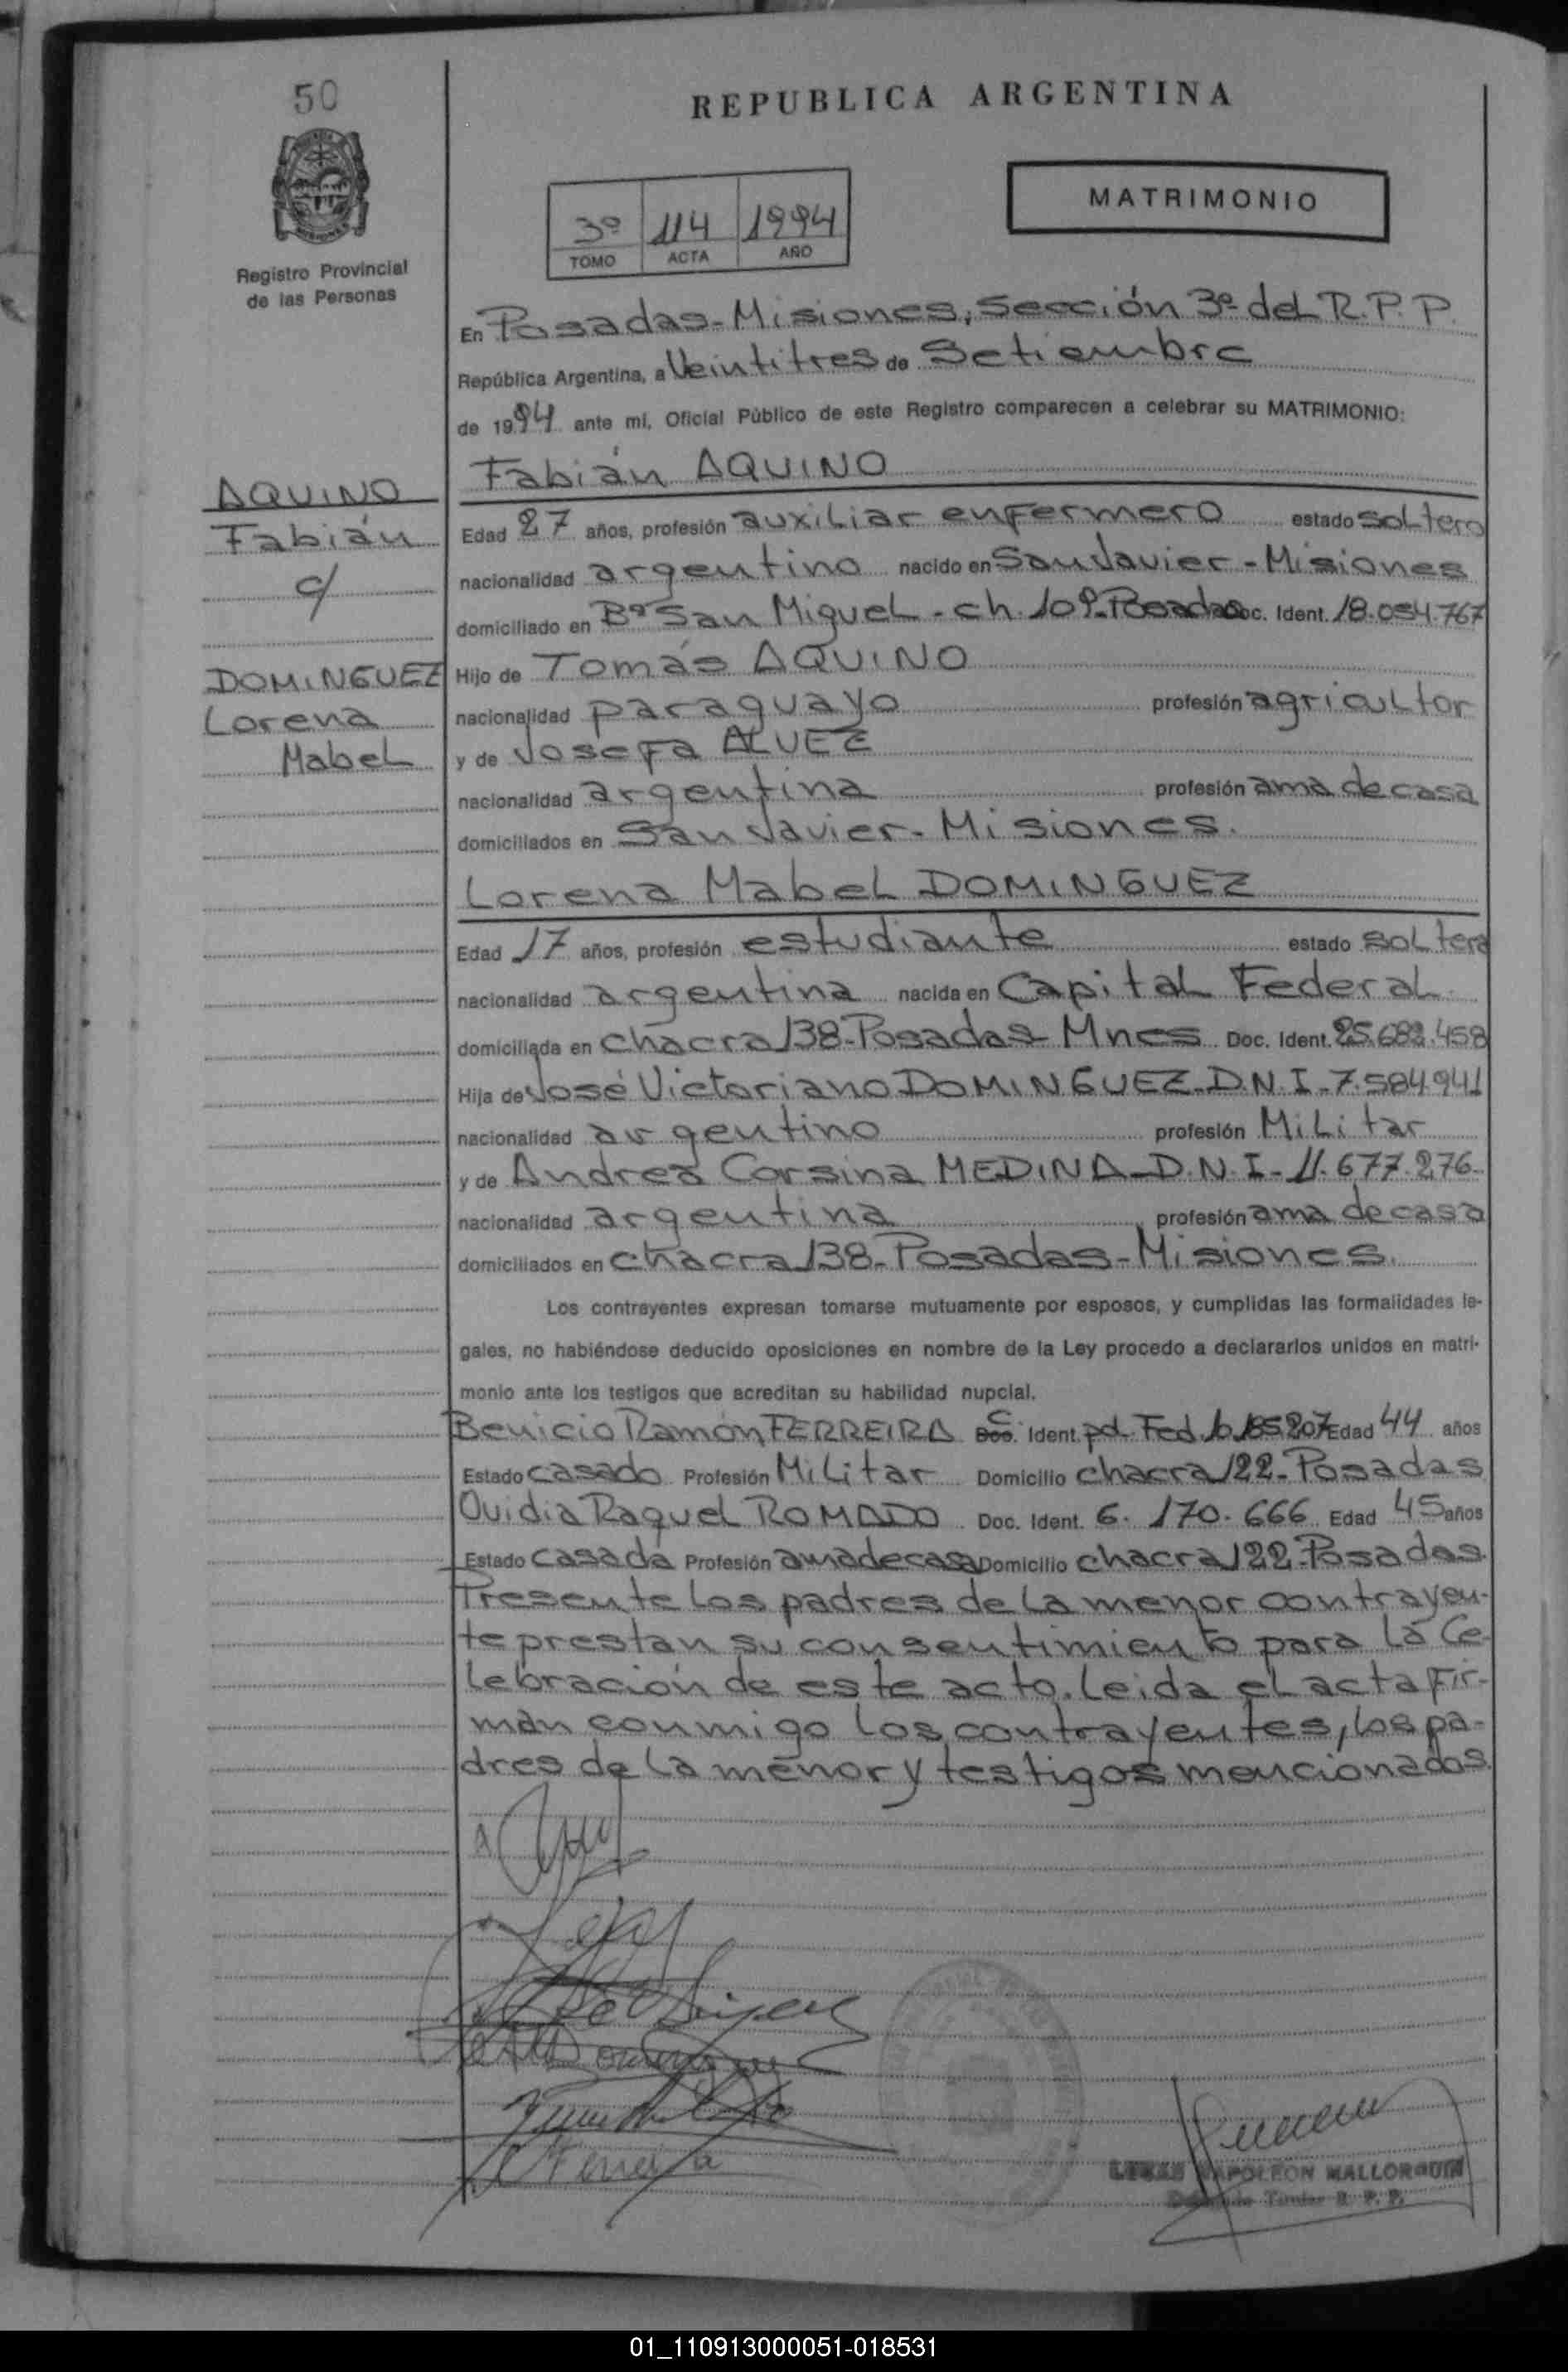 50
REPUBLICA ARGENTINA
MATRIMONIO
3º 114 1994
TOMO ACTA AÑO
Registro Provincial
de las Personas
En Posadas-Misiones, Sección 3ª del R.P.P.
República Argentina, a Veintitres de Setiembre
de 1994 ante mi, Oficial Público de este Registro comparecen a celebrar su MATRIMONIO:
AQUINO
Fabián
c/
DOMINGUEZ
Lorena
Mabel
Fabián AQUINO
Edad 27 años, profesión auxiliar enfermero estado soltero
nacionalidad argentino nacido en San Javier - Misiones
domiciliado en Bº San Miguel - ch. 109-Posadas Doc. Ident. 18.054.767
Hijo de Tomás AQUINO
nacionalidad paraguayo profesión agricultor
y de Josefa ALVEZ
nacionalidad argentina profesión ama de casa
domiciliados en San Javier - Misiones.
Lorena Mabel DOMINGUEZ
Edad 17 años, profesión estudiante estado soltera
nacionalidad argentina nacida en Capital Federal
domiciliada en chacra 138-Posadas-Mnes Doc. Ident. 25.682.458
Hija de José Victoriano DOMINGUEZ-D.N.I-7.584.941
nacionalidad argentino profesión Militar
y de Andrea Corsina MEDINA-D.N.I-11.677.276-
nacionalidad argentina profesión ama de casa
domiciliados en chacra 138-Posadas-Misiones.
Los contrayentes expresan tomarse mutuamente por esposos, y cumplidas las formalidades le-
gales, no habiéndose deducido oposiciones en nombre de la Ley procedo a declararlos unidos en matri-
monio ante los testigos que acreditan su habilidad nupcial.
Benicio Ramón FERREIRA C. Ident. pol. Fed. 10.185.207 Edad 44 años
Estado casado Profesión Militar Domicilio chacra 122-Posadas
Ovidia Raquel ROMADO Doc. Ident. 6.170.666 Edad 45 años
Estado casada Profesión ama de casa Domicilio chacra 122-Posadas.
Presente los padres de la menor contrayen-
te prestan su consentimiento para la Ce-
lebración de este acto. Leida el acta fir-
man conmigo los contrayentes, los pa-
dres de la menor y testigos mencionados.
NAPOLEON MALLORQUIN
Titular R. P. P.
01_110913000051-018531